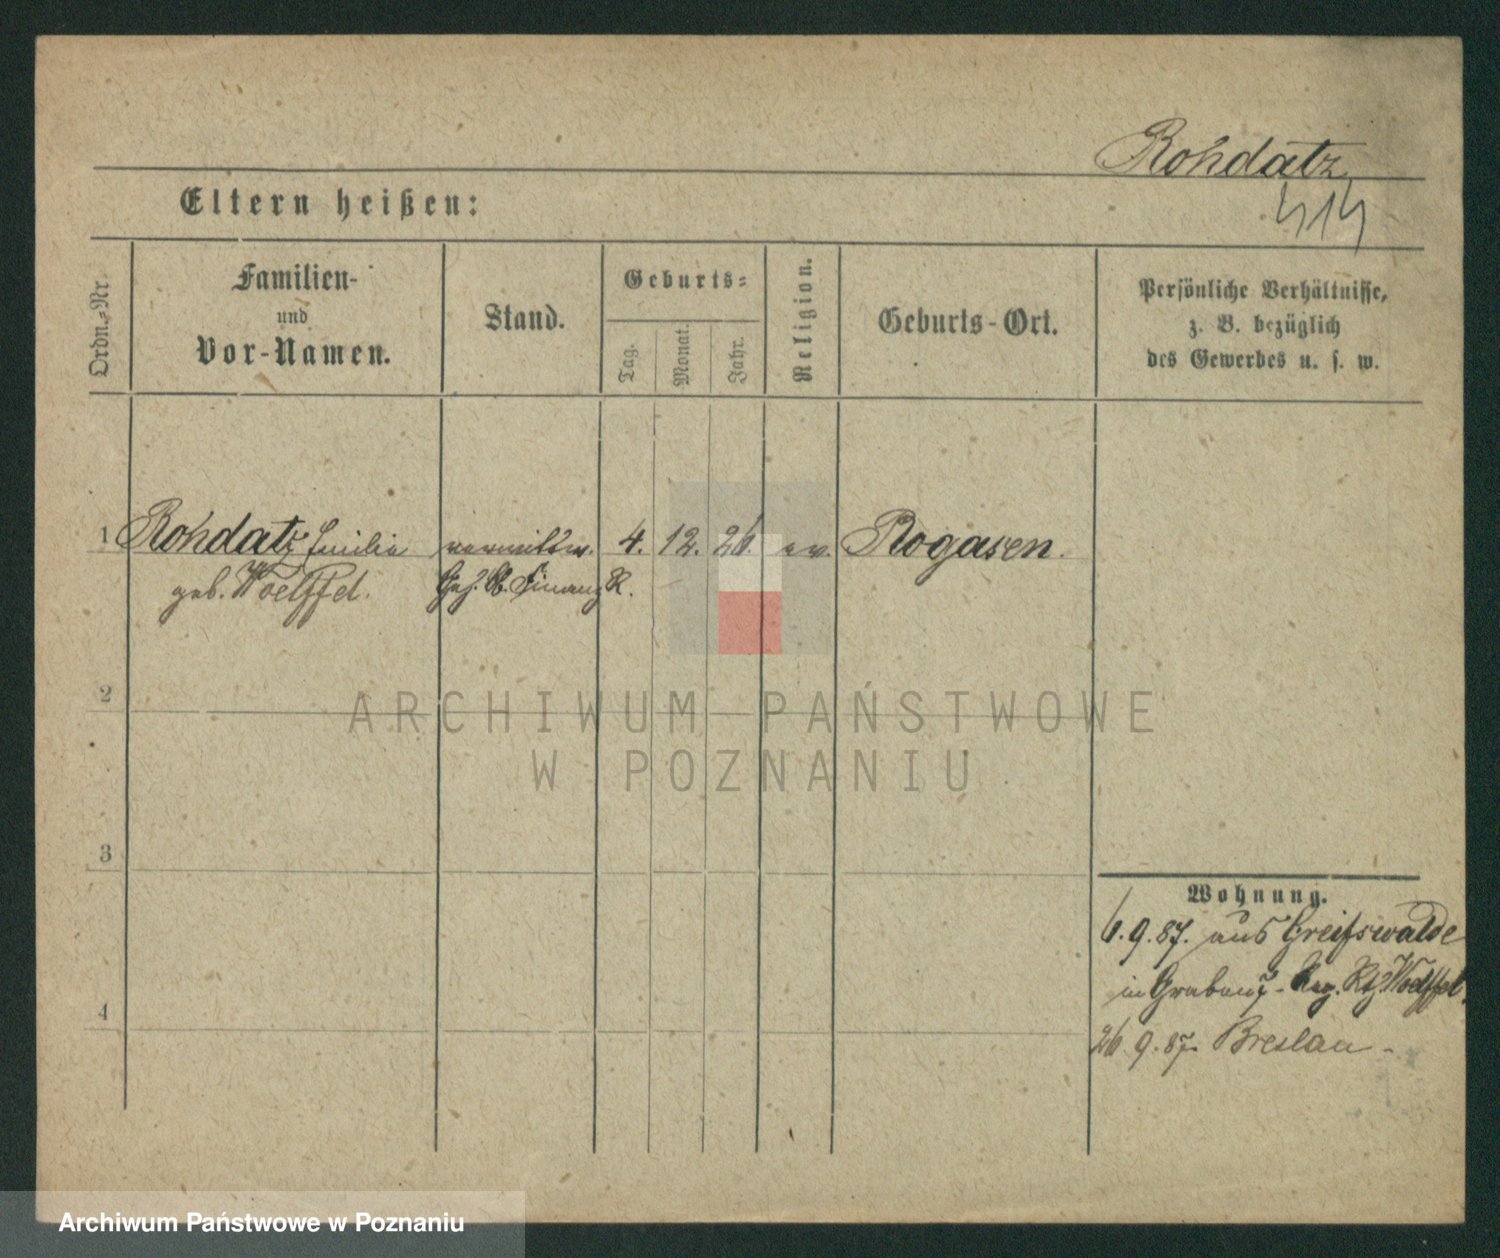 Rohdatz
414
Eltern heißen:
Ordn.-Nr.
Familien-
und
Vor-Namen.
Stand.
Geburts-
Tag.
Monat.
Jahr.
Religion.
Geburts-Ort.
Persönliche Verhältnisse,
z. B. bezüglich
des Gewerbes u. s. w.
1 Rohdatz Emilie verwittw. 4. 12. 26. ev. Rogasen.
geb. Woelffel. Geh. Finanz R.
2
ARCHIWUM PAŃSTWOWE
W POZNANIU
3
Wohnung.
6.9.87. aus Greifswalde
in Reg. Woelffel.
4
26.9.87 Breslau
Archiwum Państwowe w Poznaniu